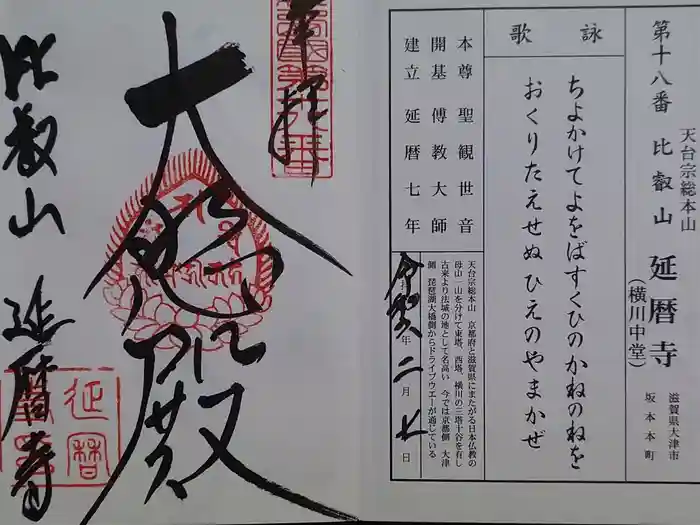 第十八番 比叡山 延暦寺
天台宗総本山
(横川中堂)
滋賀県大津市
坂本本町
詠歌
ちよかけてよをばすくひのかねのねを
おくりたえせぬひえのやまかぜ
本尊 聖観世音
開基 傅教大師
建立 延暦七年
天台宗総本山 京都府と滋賀県にまたがる日本仏教の
母山 山を分けて東塔、西塔、横川の三塔十谷を有し
古来より法城の地として名高い 今では京都側 大津
側 琵琶湖大橋側からドライブウエーが通じている
年二月 日
奉拝
大悲殿
比叡山 延暦寺
延暦